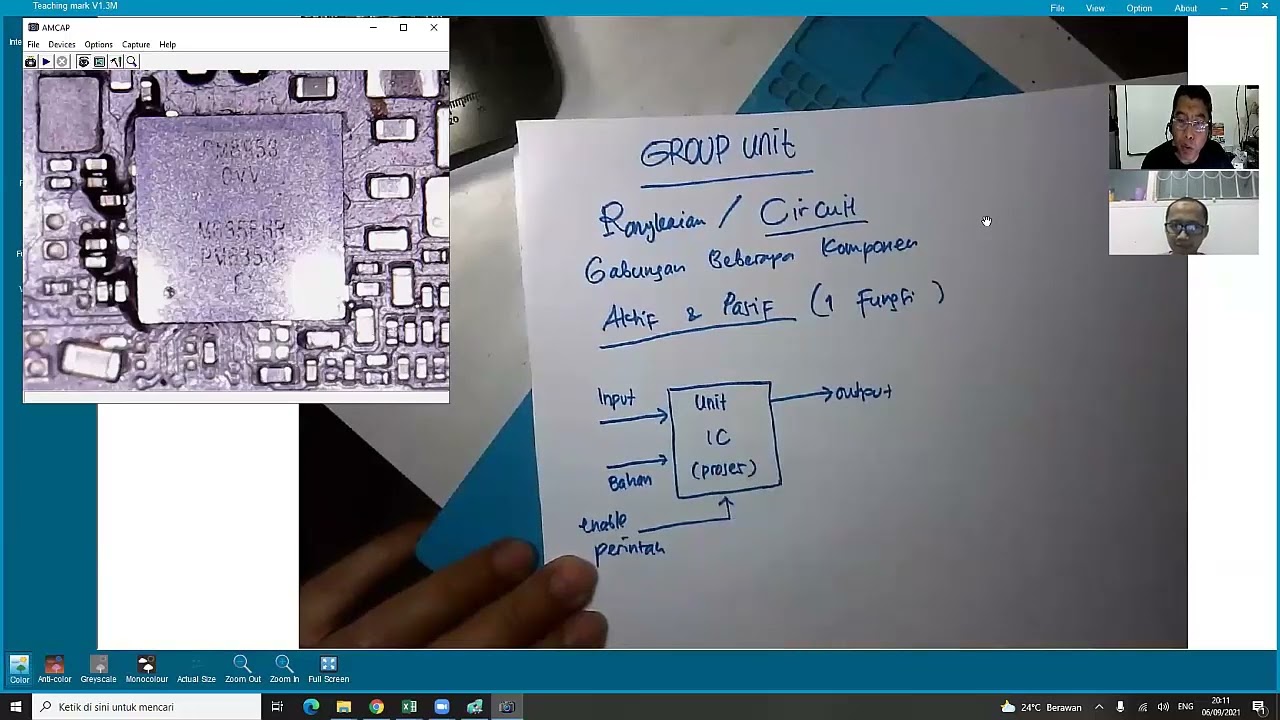 Teaching mark V1.3M
File View Option About
AMCAP
File Devices Options Capture Help
GROUP UNIT
Rangkaian / Circuit
Gabungan Beberapa Komponen
Aktif & Pasif (1 Fungsi)
Input
Unit
IC
(proses)
output
Bahan
enable
perintah
Color Anti-color Greyscale Monocolour Actual Size Zoom Out Zoom In Full Screen
Ketik di sini untuk mencari
24°C Berawan
ENG
20:11
06/09/2021